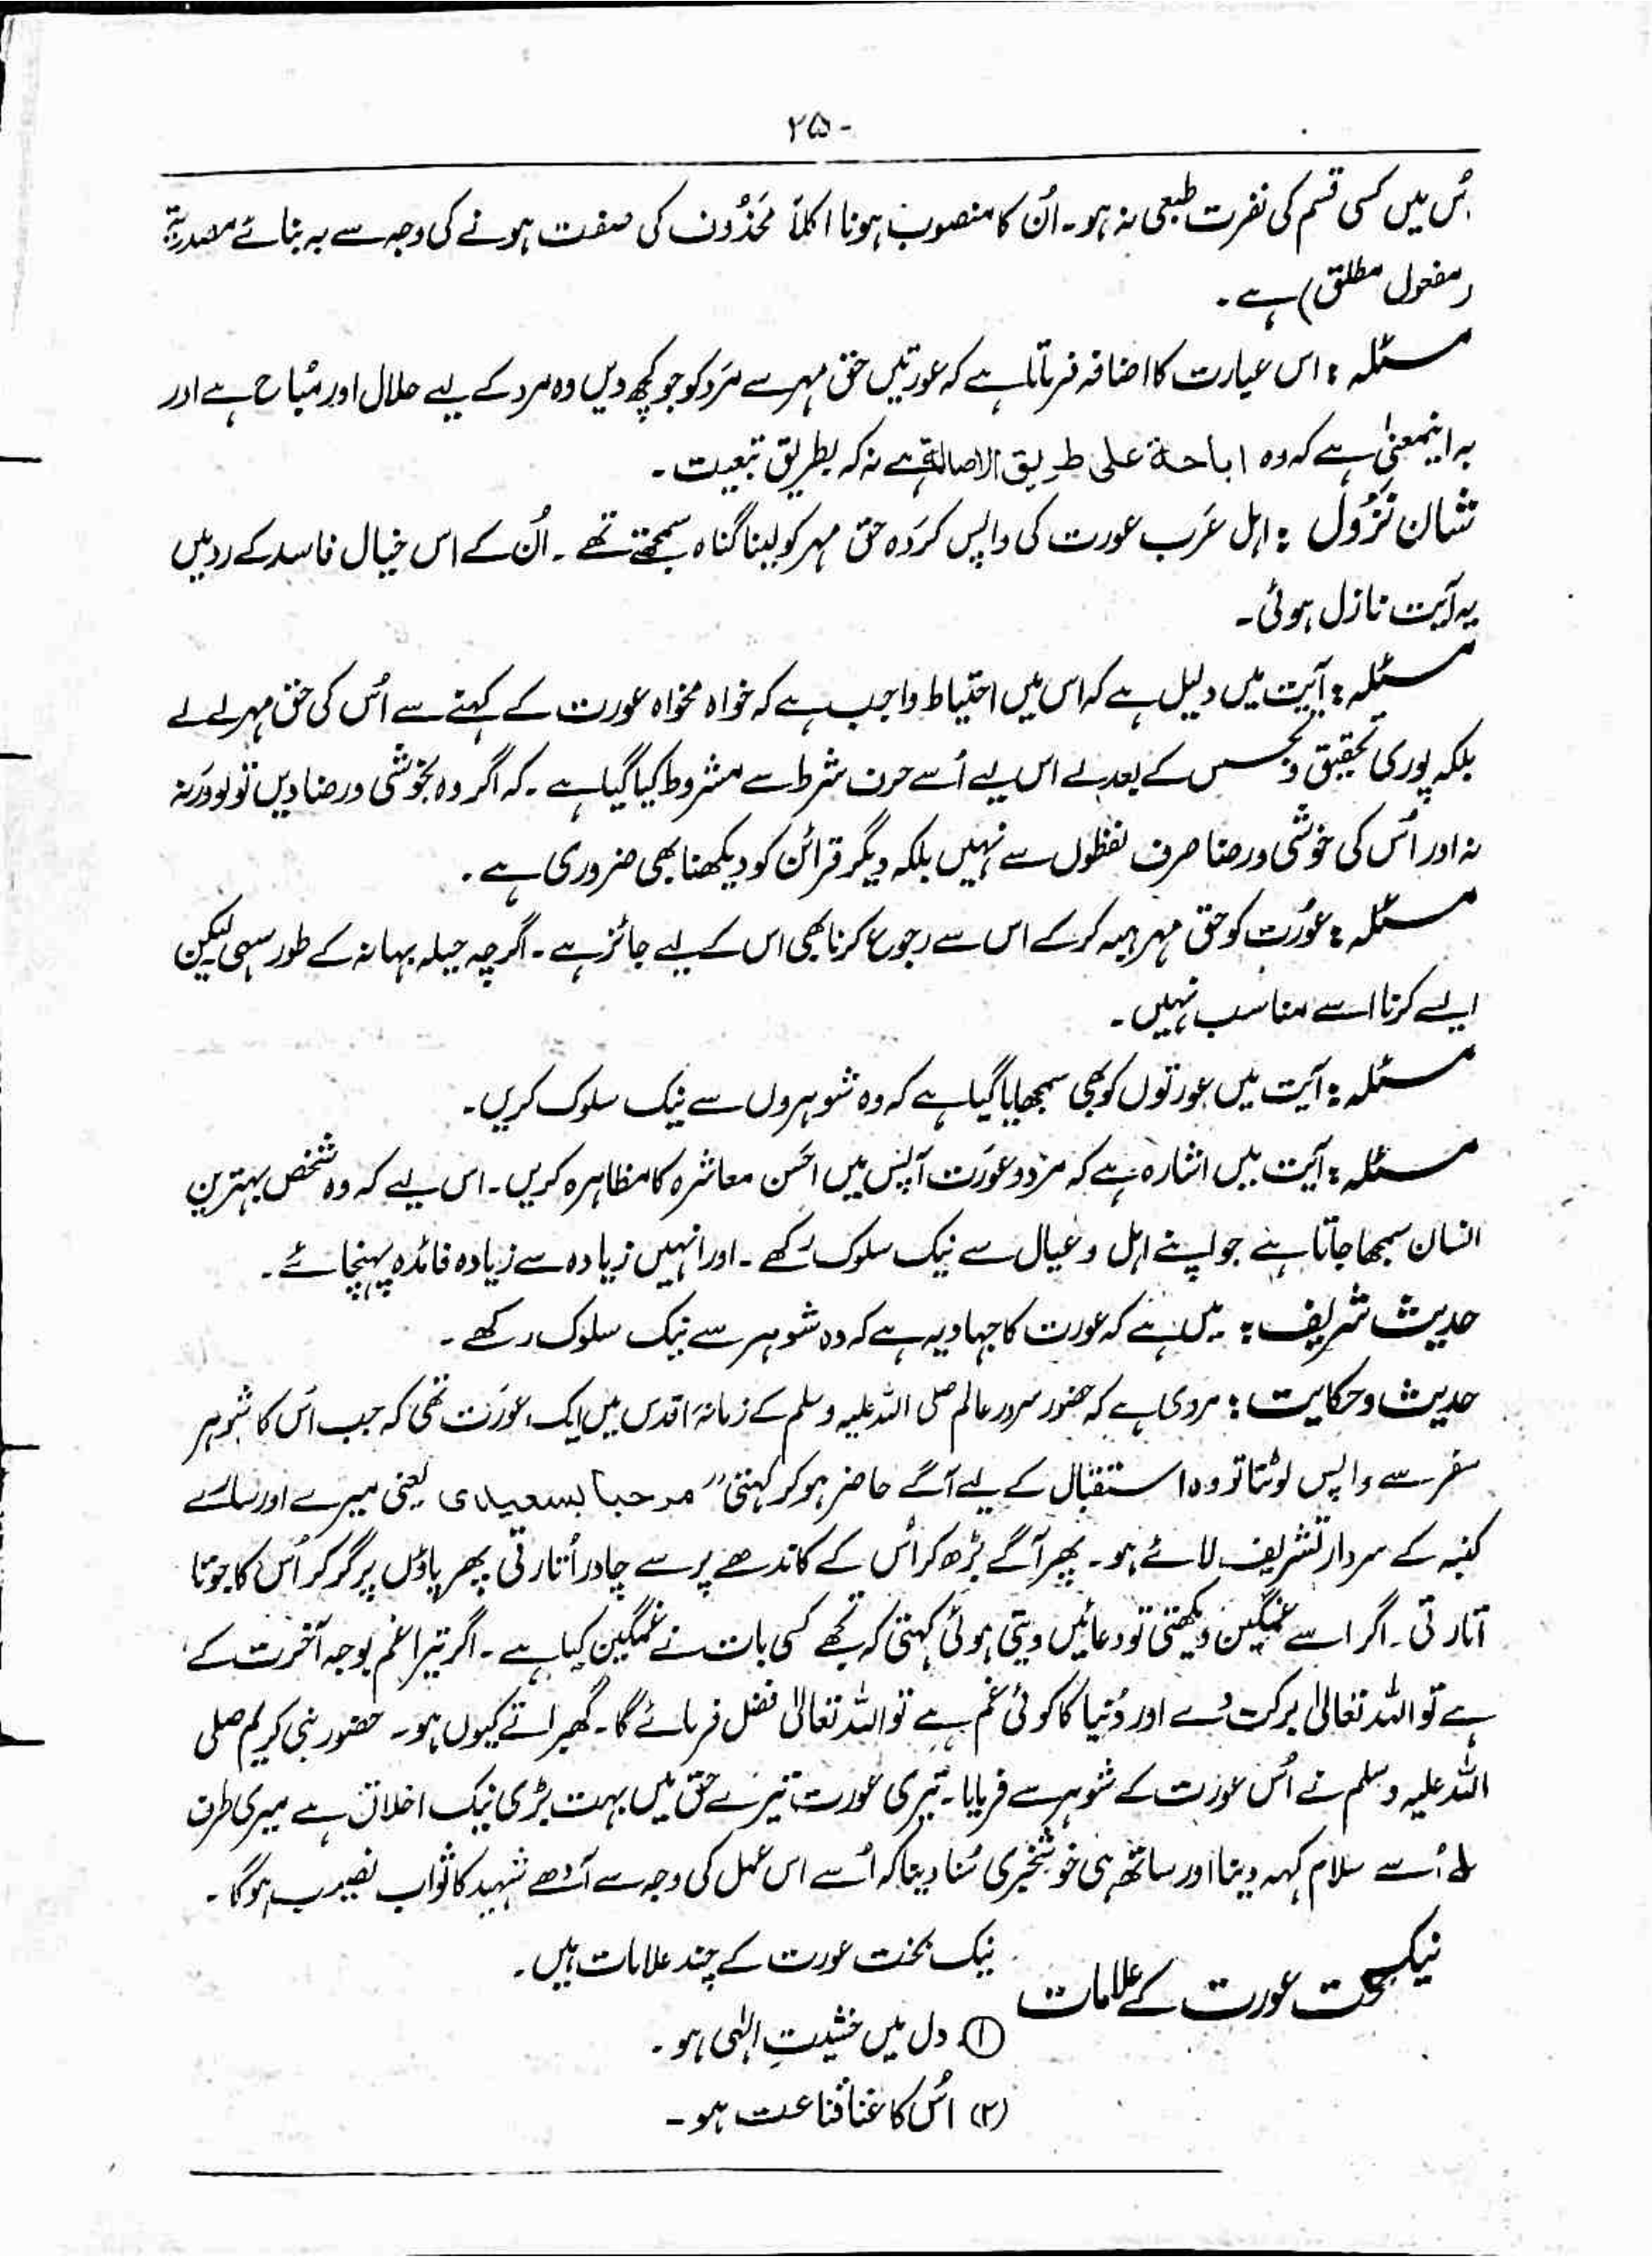 ۲۵۰
جُس میں کسی قسم کی نفرت طبعی نہ ہو۔ اُن کا منصوب ہونا اکلاً محَذُوف کی صفت ہونے کی وجہ سے بہ بنائے مصدریۃ
(مفعول مطلق) ہے۔
مسئلہ : اس عبارت کا اضافہ فرماتا ہے کہ عورتیں حق مہر سے مَرَد کو جو کچھ دیں وہ مرد کے لیے حلال اور مُباح ہے اور
بہ اینمعنیٰ ہے کہ وہ اباحة على طريق الاصالة ہے نہ کہ بطریق تبعیت۔
شان نَزُول : اہل عَرَب عورت کی واپس کَردَہ حق مہر کو لینا گناہ سمجھتے تھے۔ اُن کے اس خیال فاسد کے رد میں
یہ آیت نازل ہوئی۔
مسئلہ : آیت میں دلیل ہے کہ اس میں احتیاط واجب ہے کہ خواہ مخواہ عورت کے کہنے سے اُس کی حق مہر لے لے
بلکہ پوری تحقیق و تجسس کے بعد لے اس لیے اُسے حرف شرط سے مشروط کیا گیا ہے۔ کہ اگر وہ بخوشی ورضا دیں تو لو ورَنہ
نہ اور اُس کی خوشی ورضا صرف لفظوں سے نہیں بلکہ دیگر قرائن کو دیکھنا بھی ضروری ہے۔
مسئلہ : عوُرت کو حق مہر ہبہ کر کے اس سے رجوع کرنا بھی اس کے لیے جائز ہے۔ اگرچہ حیلہ بہانہ کے طور سہی لیکن
ایسے کرنا اسے مناسب نہیں۔
مسئلہ : آیَت میں عورتوں کو بھی سمجھایا گیا ہے کہ وہ شوہروں سے نیک سلوک کریں۔
مسئلہ : آیَت میں اشارہ ہے کہ مَرَد و عورَت آپس میں احَسن معاشرہ کا مظاہرہ کریں۔ اس لیے کہ وہ شخص بہترین
انسان سمجھا جاتا ہے جو اپنے اہل وعیال سے نیک سلوک رکھے۔ اور انہیں زیادہ سے زیادہ فائدہ پہنچائے۔
حدیث شریف : میں ہے کہ عورت کا جہاد یہ ہے کہ وہ شوہر سے نیک سلوک رکھے۔
حدیث وحکایت : مروی ہے کہ حضور سرور عالم صلی اللہ علیہ وسلم کے زمانۂ اقدس میں ایک عورَت تھی کہ جب اُس کا شوہر
سفر سے واپس لوٹتا تو وہ استقبال کے لیے آگے حاضر ہو کر کہتی "مرحبا بسعیدی یعنی میرے اور سارے
کنبہ کے سردار تشریف لائے ہو۔ پھر آگے بڑھ کر اُس کے کاندھے پر سے چادر اُتارتی پھر پاؤں پر گر کر اُس کا جوتا
اتارتی۔ اگر اسے غمگین دیکھتی تو دعائیں دیتی ہوئی کہتی کہ تجھے کسی بات نے غمگین کیا ہے۔ اگر تیرا غم بوجہ آخرت کے
ہے تو اللہ تعالیٰ برکت دے اور دُنیا کا کوئی غم ہے تو اللہ تعالیٰ فضل فرمائے گا۔ گھبراتے کیوں ہو۔ حضور نبی کریم صلی
اللہ علیہ وسلم نے اُس عورت کے شوہر سے فرمایا۔ تیری عورت تیرے حق میں بہت بڑی نیک اخلاق ہے میری طرف
اُسے سلام کہہ دینا اور ساتھ ہی خوشخبری سُنا دینا کہ اُسے اس عمل کی وجہ سے آدھے شہید کا ثواب نصیب ہو گا۔
نیک بخت عورت کے علامات
نیک بخت عورت کے چند علامات ہیں۔
① دل میں خشیتِ الٰہی ہو۔
(۲) اُس کا غنا قناعت ہو۔